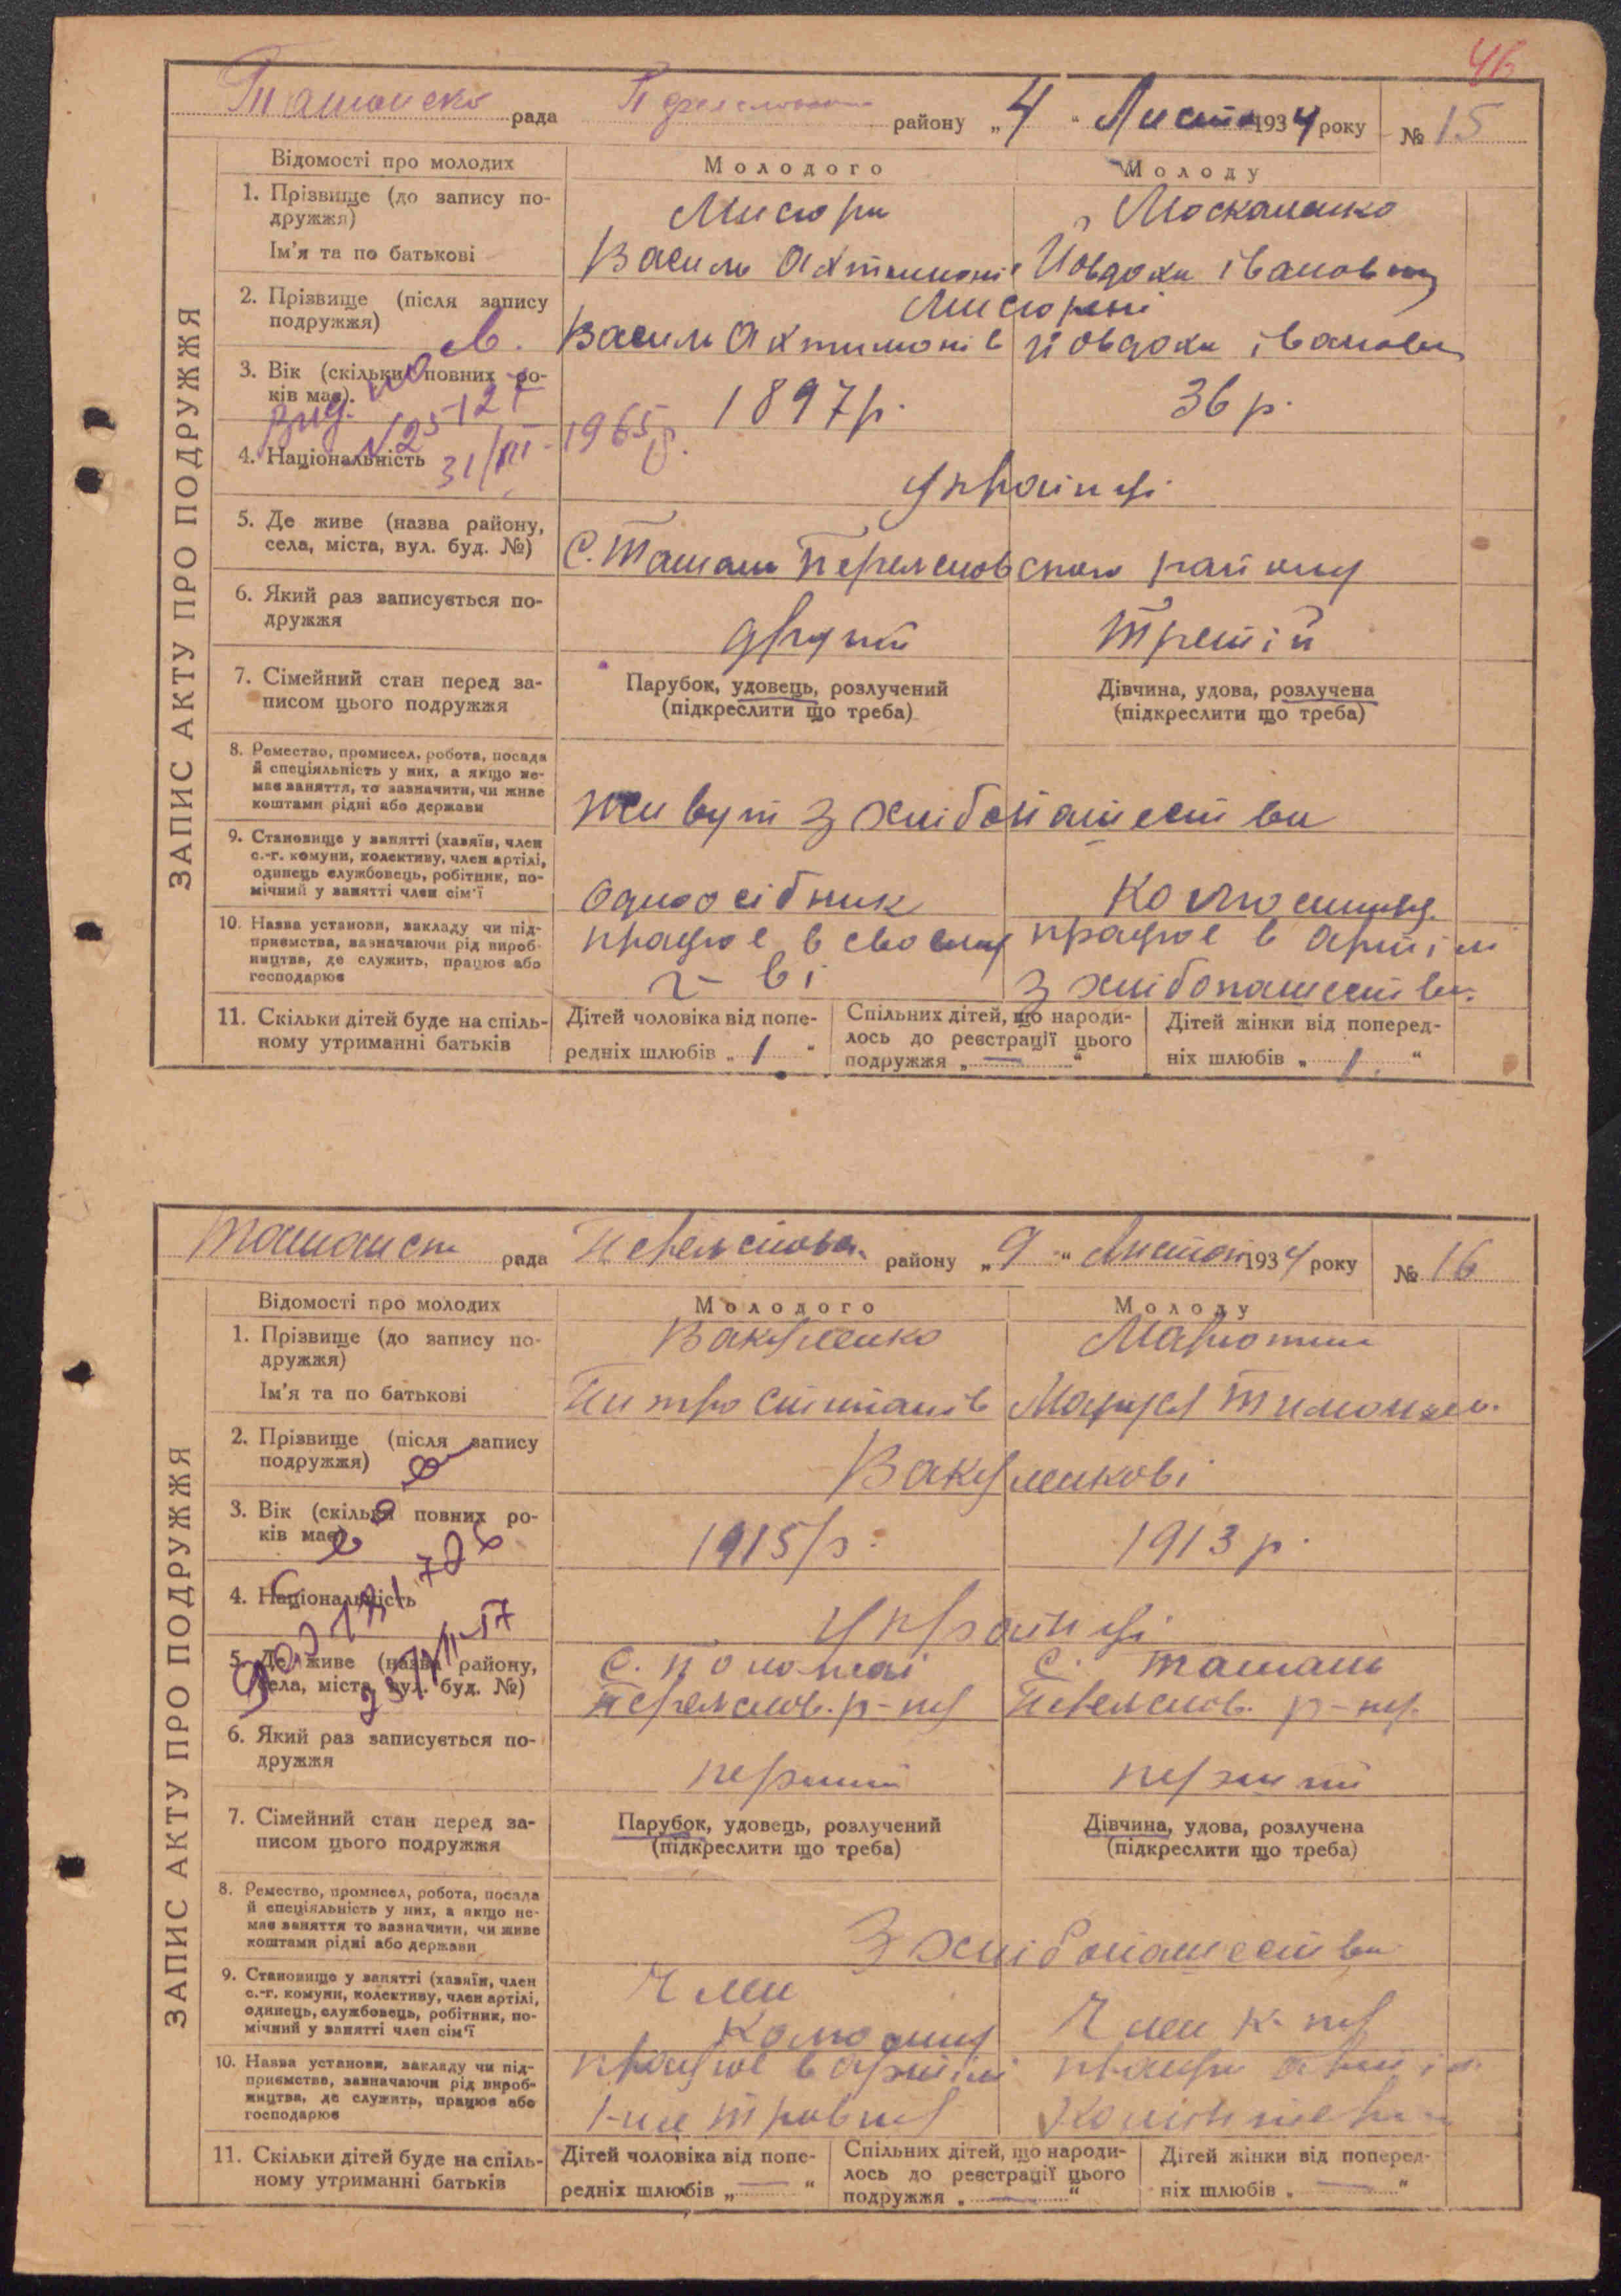 46
рада району „4“ Листоп 1934 року № 15
ЗАПИС АКТУ ПРО ПОДРУЖЖЯ
Відомості про молодих Молодого Молоду
1. Прізвище (до запису по-
дружжя)
Москаленко
Ім'я та по батькові
Василь Івановна
2. Прізвище (після запису
подружжя)
Василь
3. Вік (скільки повних ро-
ків має).
1897р. 36 р.
Вид. №
31/III - 1965р.
4. Національність
українці
5. Де живе (назва району,
села, міста, вул. буд. №)
С. Ташань району
6. Який раз записується по-
дружжя
другий третій
7. Сімейний стан перед за-
писом цього подружжя
Парубок, удовець, розлучений
(підкреслити що треба)
Дівчина, удова, розлучена
(підкреслити що треба)
8. Ремество, промисел, робота, посада
й спеціяльність у них, а якщо не-
має заняття, то зазначити, чи живе
коштами рідні або держави
живут з хлібопашества
9. Становище у занятті (хазяїн, член
с.-г. комуни, колективу, член артілі,
одинець службовець, робітник, по-
мічний у занятті член сім'ї
односібник
10. Назва установи, закладу чи під-
приємства, зазначаючи рід вироб-
ництва, де служить, працює або
господарює
працює в своєму працює в артілі
г-ві з хлібопашества.
11. Скільки дітей буде на спіль-
ному утриманні батьків
Дітей чоловіка від попе-
редніх шлюбів „1“
Спільних дітей, що народи-
лось до реєстрації цього
подружжя „—“
Дітей жінки від поперед-
ніх шлюбів „1.“
рада району „9“ Листоп 1934 року № 16
ЗАПИС АКТУ ПРО ПОДРУЖЖЯ
Відомості про молодих Молодого Молоду
1. Прізвище (до запису по-
дружжя)
Вакуленко
Ім'я та по батькові
2. Прізвище (після запису
подружжя)
Вакуленкові
3. Вік (скільки повних ро-
ків має)
1915р. 1913 р.
4. Національність
Українці
5. Де живе (назва району,
села, міста, вул. буд. №)
с. с. Ташань
р-ну р-ну.
6. Який раз записується по-
дружжя
перший перший
7. Сімейний стан перед за-
писом цього подружжя
Парубок, удовець, розлучений
(підкреслити що треба)
Дівчина, удова, розлучена
(підкреслити що треба)
8. Ремество, промисел, робота, посада
й спеціяльність у них, а якщо не-
має заняття то зазначити, чи живе
коштами рідні або держави
З хлібопашества
9. Становище у занятті (хазяїн, член
с.-г. комуни, колективу, член артілі,
одинець, службовець, робітник, по-
мічний у занятті член сім'ї
Член
Колгоспу Член к-пу
10. Назва установи, закладу чи під-
приємства, зазначаючи рід вироб-
ництва, де служить, працює або
господарює
працює в артілі
11. Скільки дітей буде на спіль-
ному утриманні батьків
Дітей чоловіка від попе-
редніх шлюбів „—“
Спільних дітей, що народи-
лось до реєстрації цього
подружжя „—“
Дітей жінки від поперед-
ніх шлюбів „—“